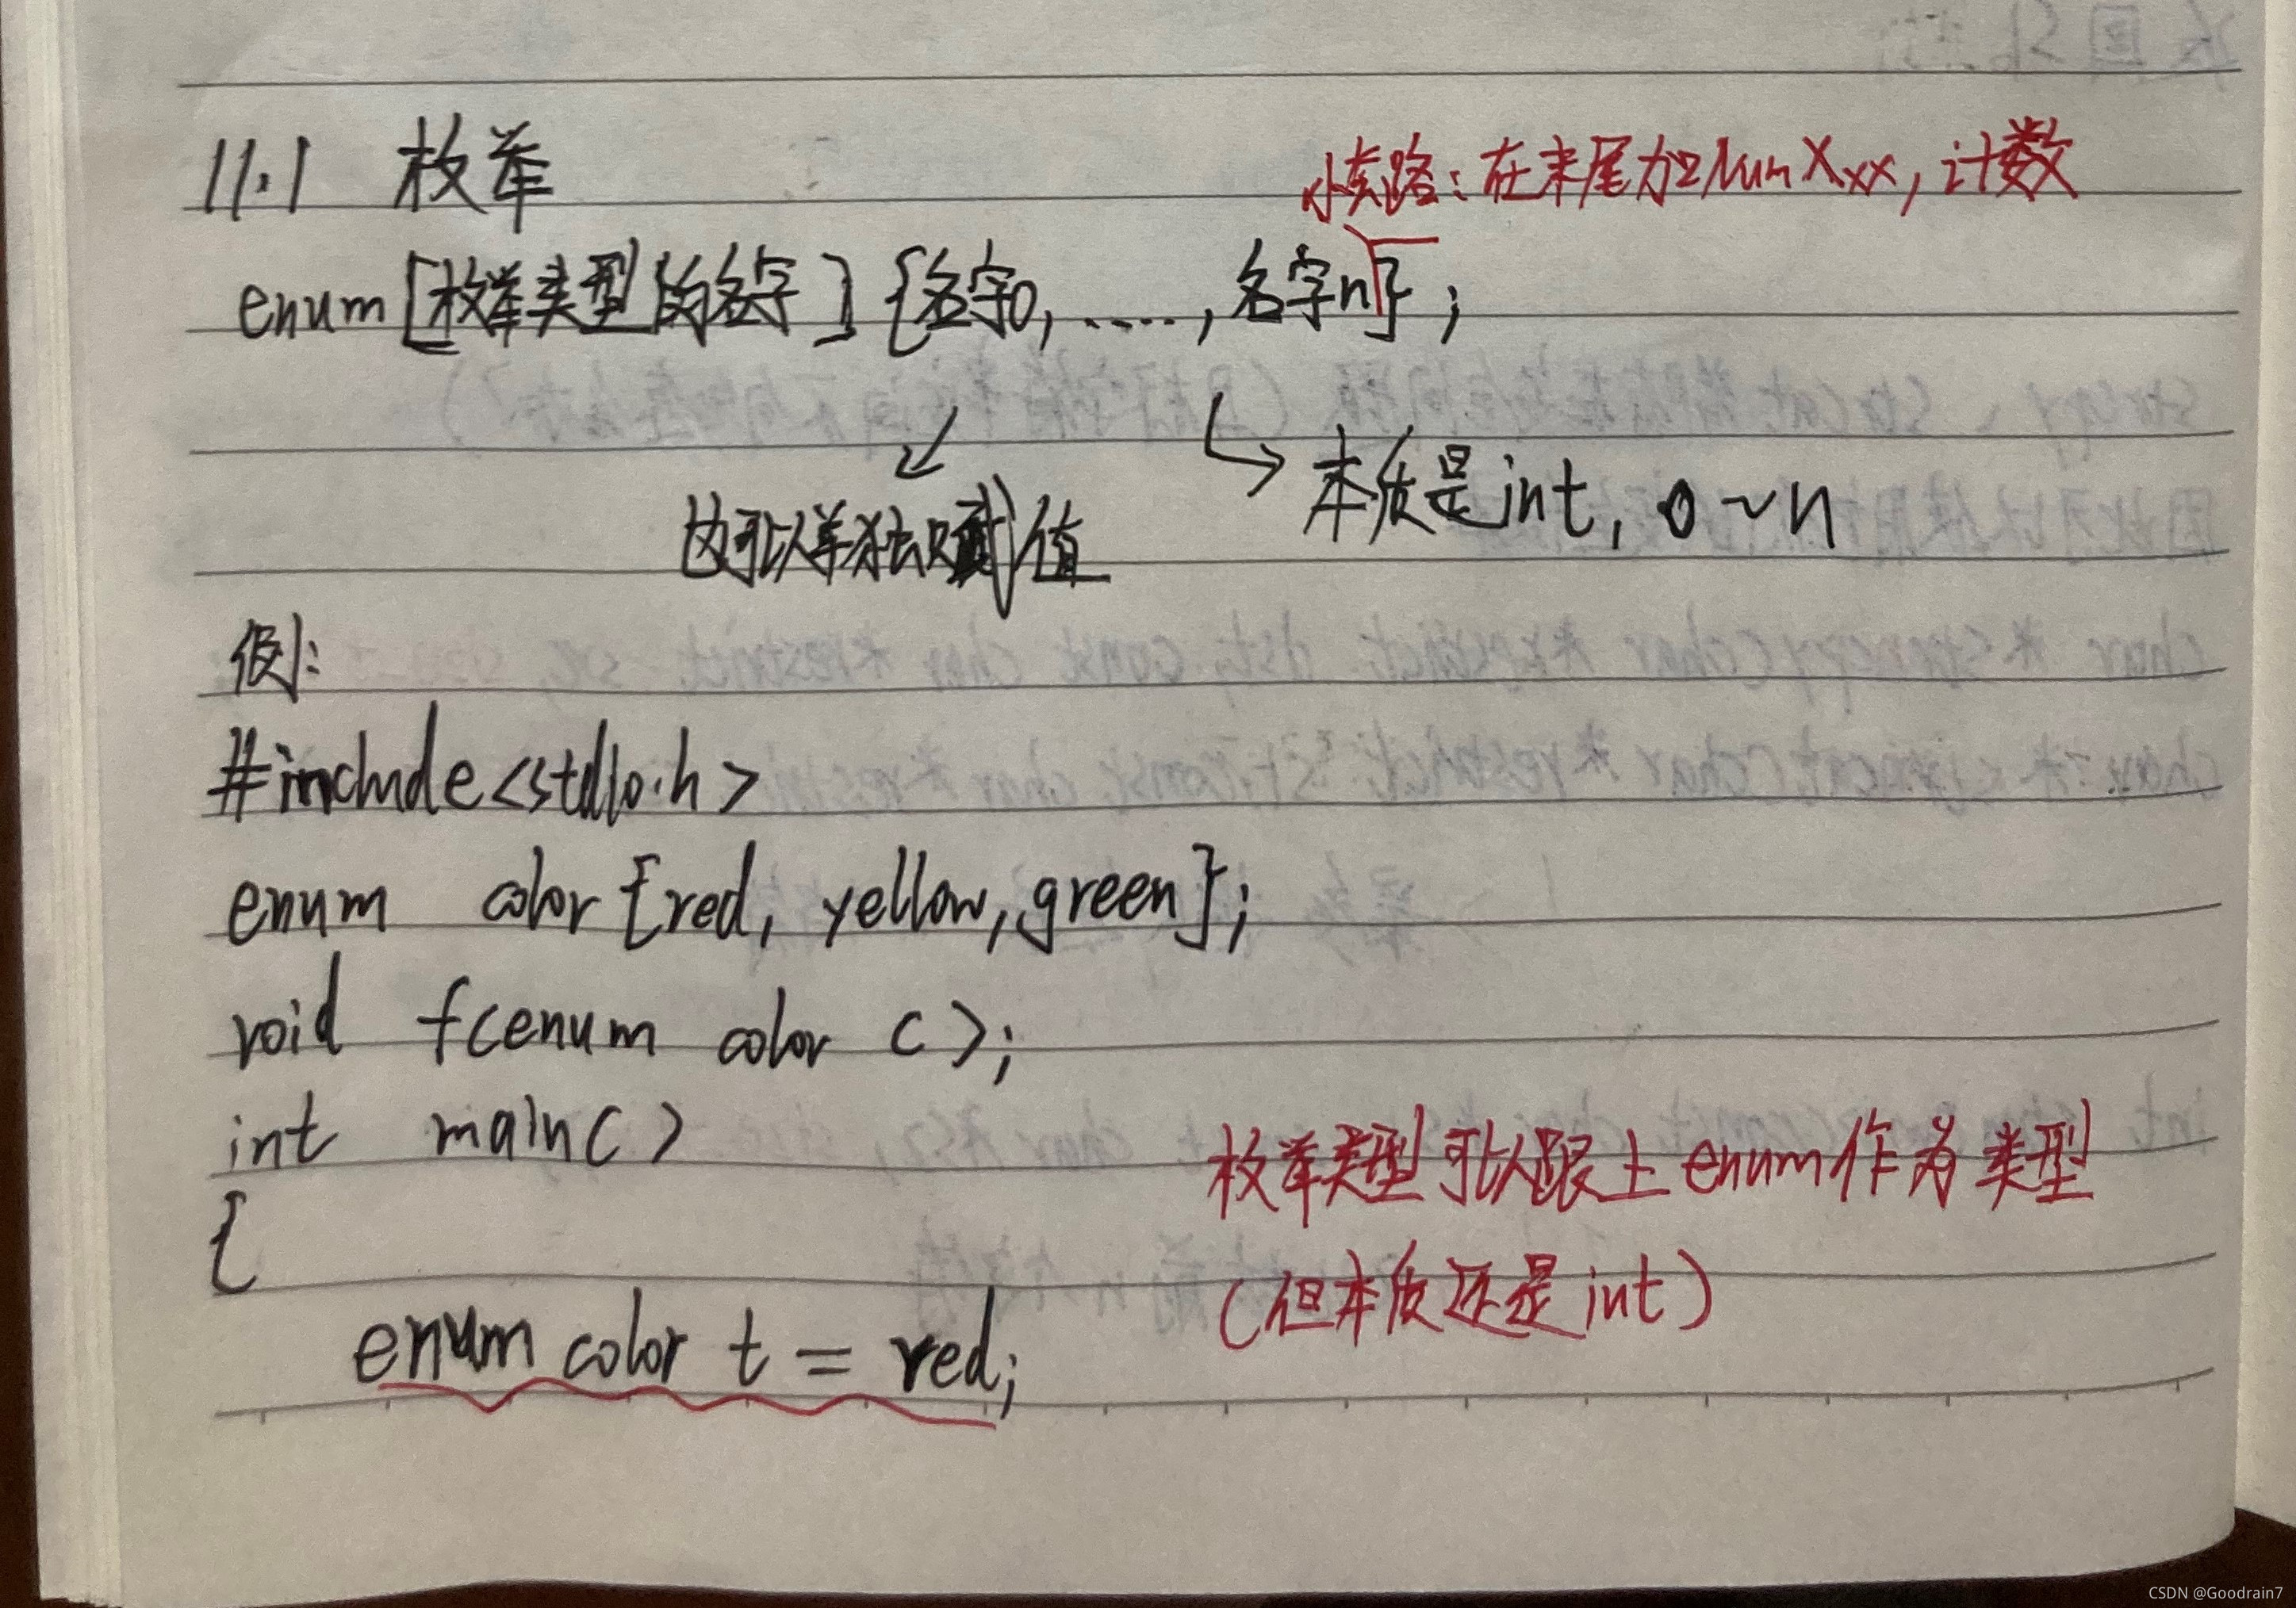 11.1 枚举
小套路：在末尾加Num Xxx，计数
enum[枚举类型的名字]{名字0,.....,名字n};
也可以单独赋值
本质是int, 0~n
例:
#include<stdio.h>
enum color{red, yellow,green};
void f(enum color c);
int main()
{
枚举类型可以跟上enum作为类型
(但本质还是int)
enum color t = red;
CSDN @Goodrain7